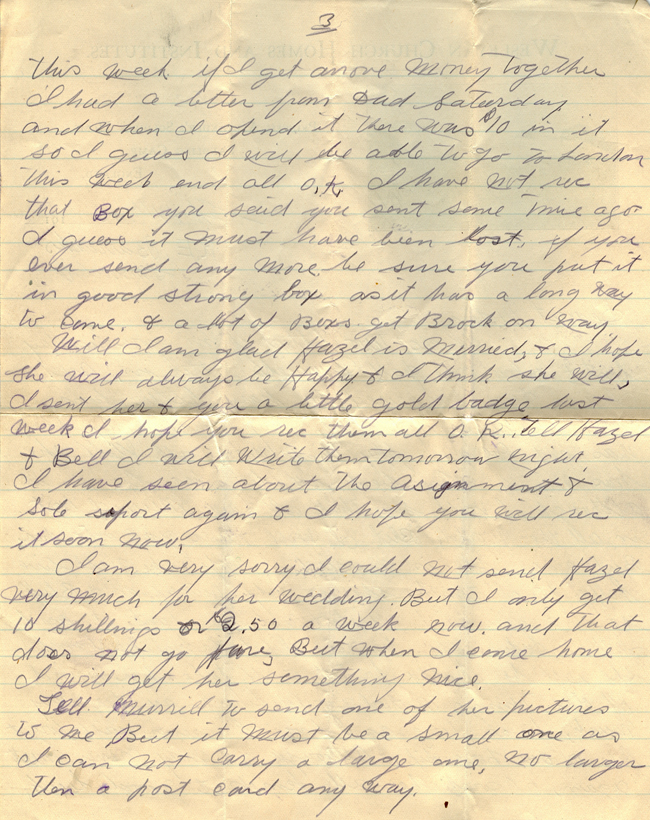 3
this week if I get anove money together
I had a letter from Dad Saturday
and when I opend it there was $10 in it
so I guess I will be able to go to London
this week end all O.K. I have not rec
that Box you said you sent some time ago
I guess it must have been lost, if you
ever send any more be sure you put it
in good strong box as it has a long way
to come. & a lot of Boxs get Brock on way
Will I am glad Hazel is Merried, & I hope
she will always be Happy & I think she will,
I sent her & you a little gold badge last
week I hope you rec them all O.K., tell Hazel
& Bell I will Write them tomorrow night
I have seen about the Asignment &
Sole seport again & I hope you will rec
it soon now.
I am very sorry I could not send Hazel
very much for her wedding. But I only get
10 shillings or $2.50 a week now. and that
does not go fure, But when I come home
I will get her something nice.
Tell Murrill to send one of her pictures
to me But it must be a small one as
I can not carry a large one, no larger
then a post card any way.